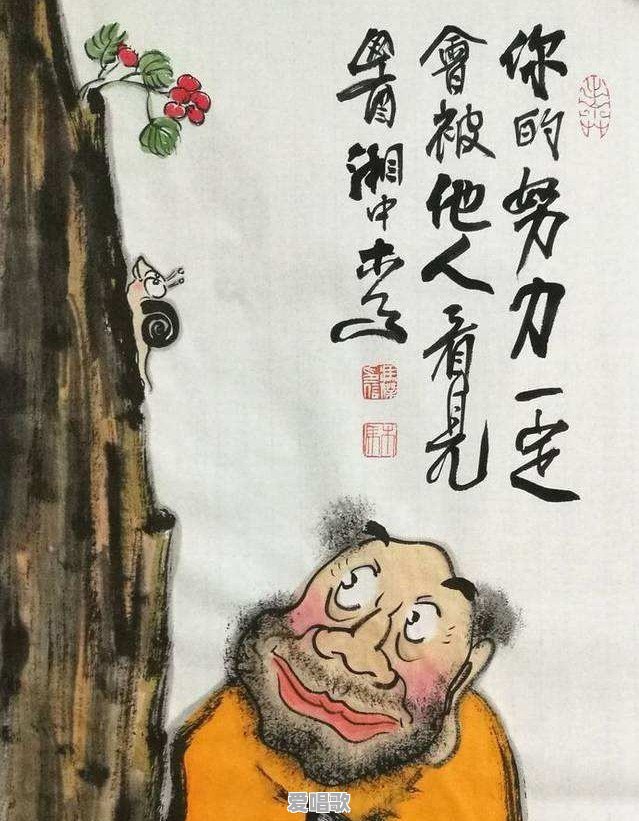 你的努力一定
會被他人看見
湘中
爱唱歌